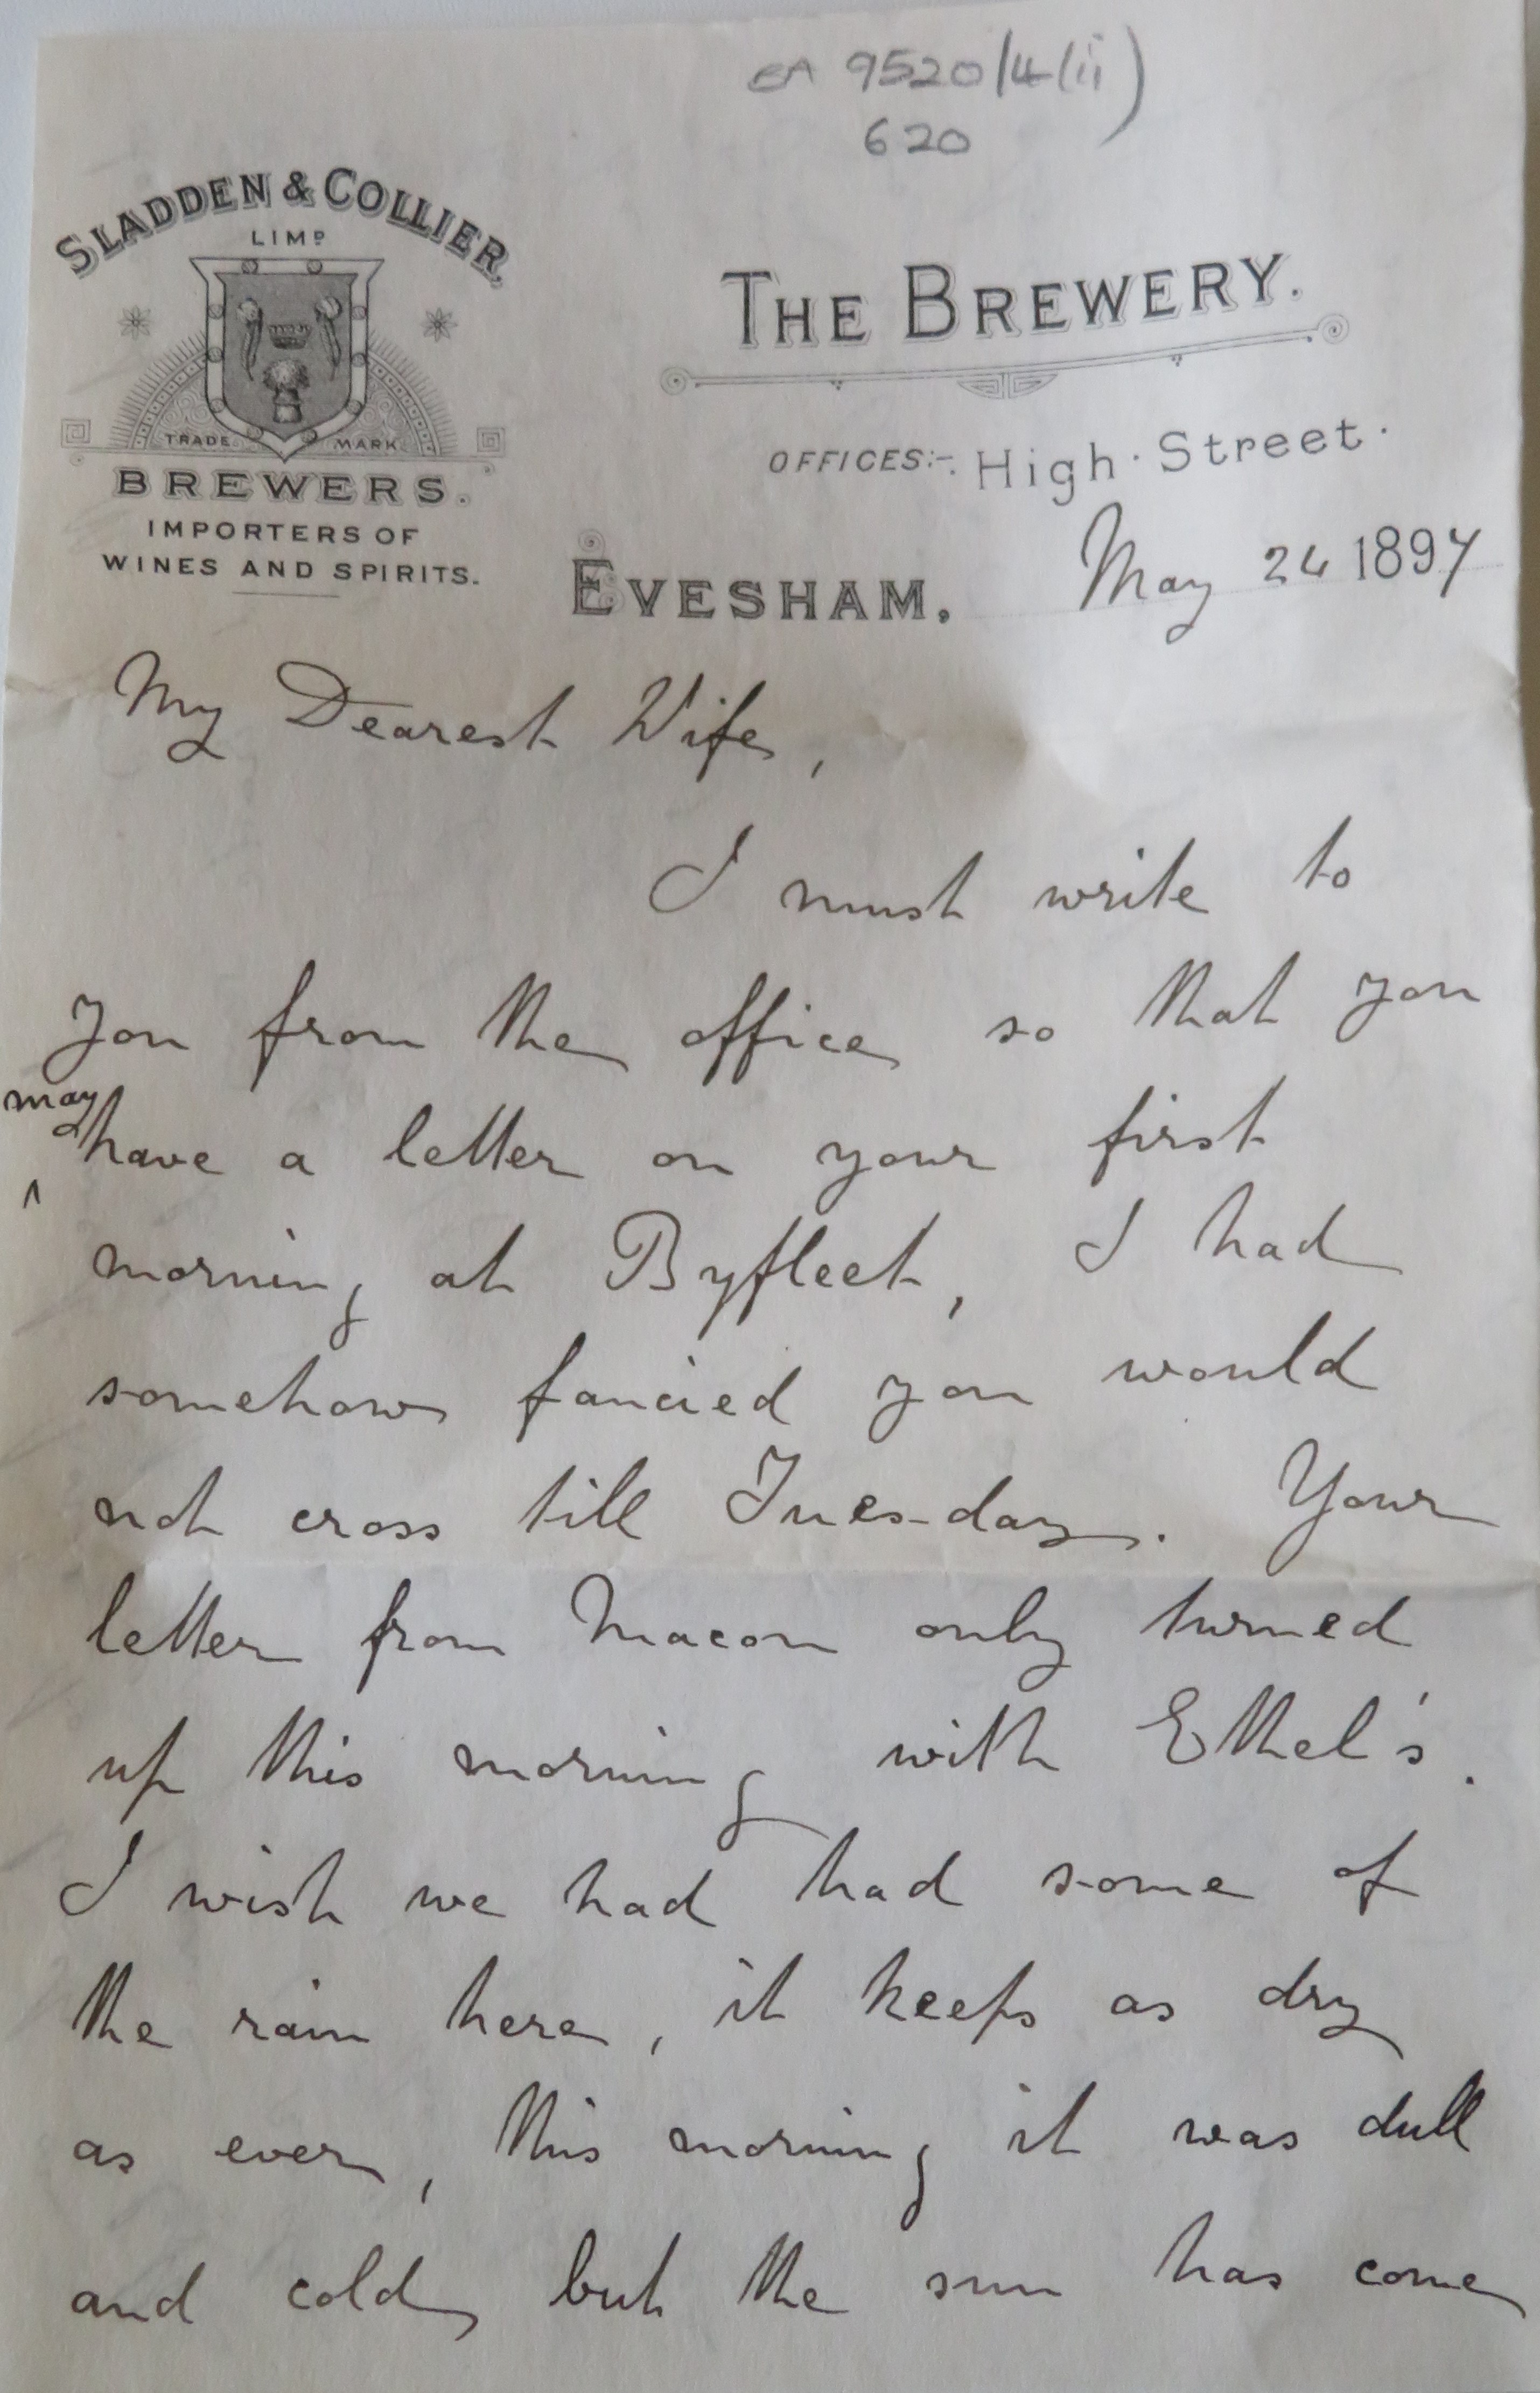 EA 9520/4(ii)
620
SLADDEN & COLLIER,
LIMD
TRADE MARK
BREWERS.
IMPORTERS OF
WINES AND SPIRITS.
THE BREWERY.
OFFICES:- High Street.
EVESHAM. May 24 1897
My Dearest Wife,
I must write to
you from the office so that you
may
have a letter on your first
morning at Byfleet, I had
somehow fancied you would
not cross till Tuesday. Your
letter from Macon only turned
up this morning with Ethel's.
I wish we had had some of
the rain here, it keeps as dry
as ever, this morning it was dull
and cold, but the sun has come